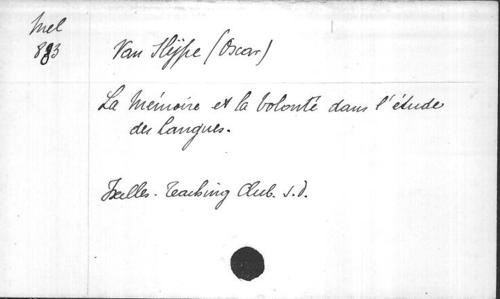 Mel
893
Van Slÿpe (Oscar)
La Mémoire et la Volonté dans l'étude
des Langues.
Ixelles. Teaching Club. s.d.